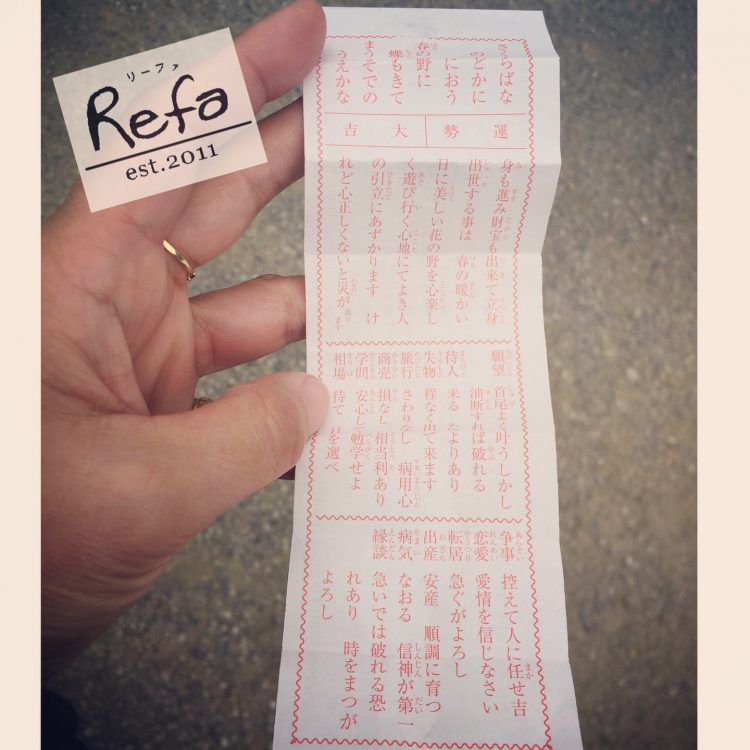 リーファ
Refa
est.2011
らばな
のどかに
におう
春の野に
蝶もきて
まうそでの
うえかな
運勢 大吉
身も進み財宝も出来て立身
出世する事は 春の暖かい
日に美しい花の野を心楽し
く遊び行く心地にてよき人
の引立にあずかります け
れど心正しくないと災があります
願望 首尾よく叶うしかし
油断すれば破れる
待人 来る たよりあり
失物 程なく出て来ます
旅行 さわりなし 病用心
商売 損なし 相当利あり
学問 安心して勉学せよ
相場 待て を選べ
争事 控えて人に任せ吉
恋愛 愛情を信じなさい
転居 急ぐがよろし
出産 安産 順調に育つ
病気 なおる 信神が第一
縁談 急いでは破れる恐
れあり 時をまつが
よろし